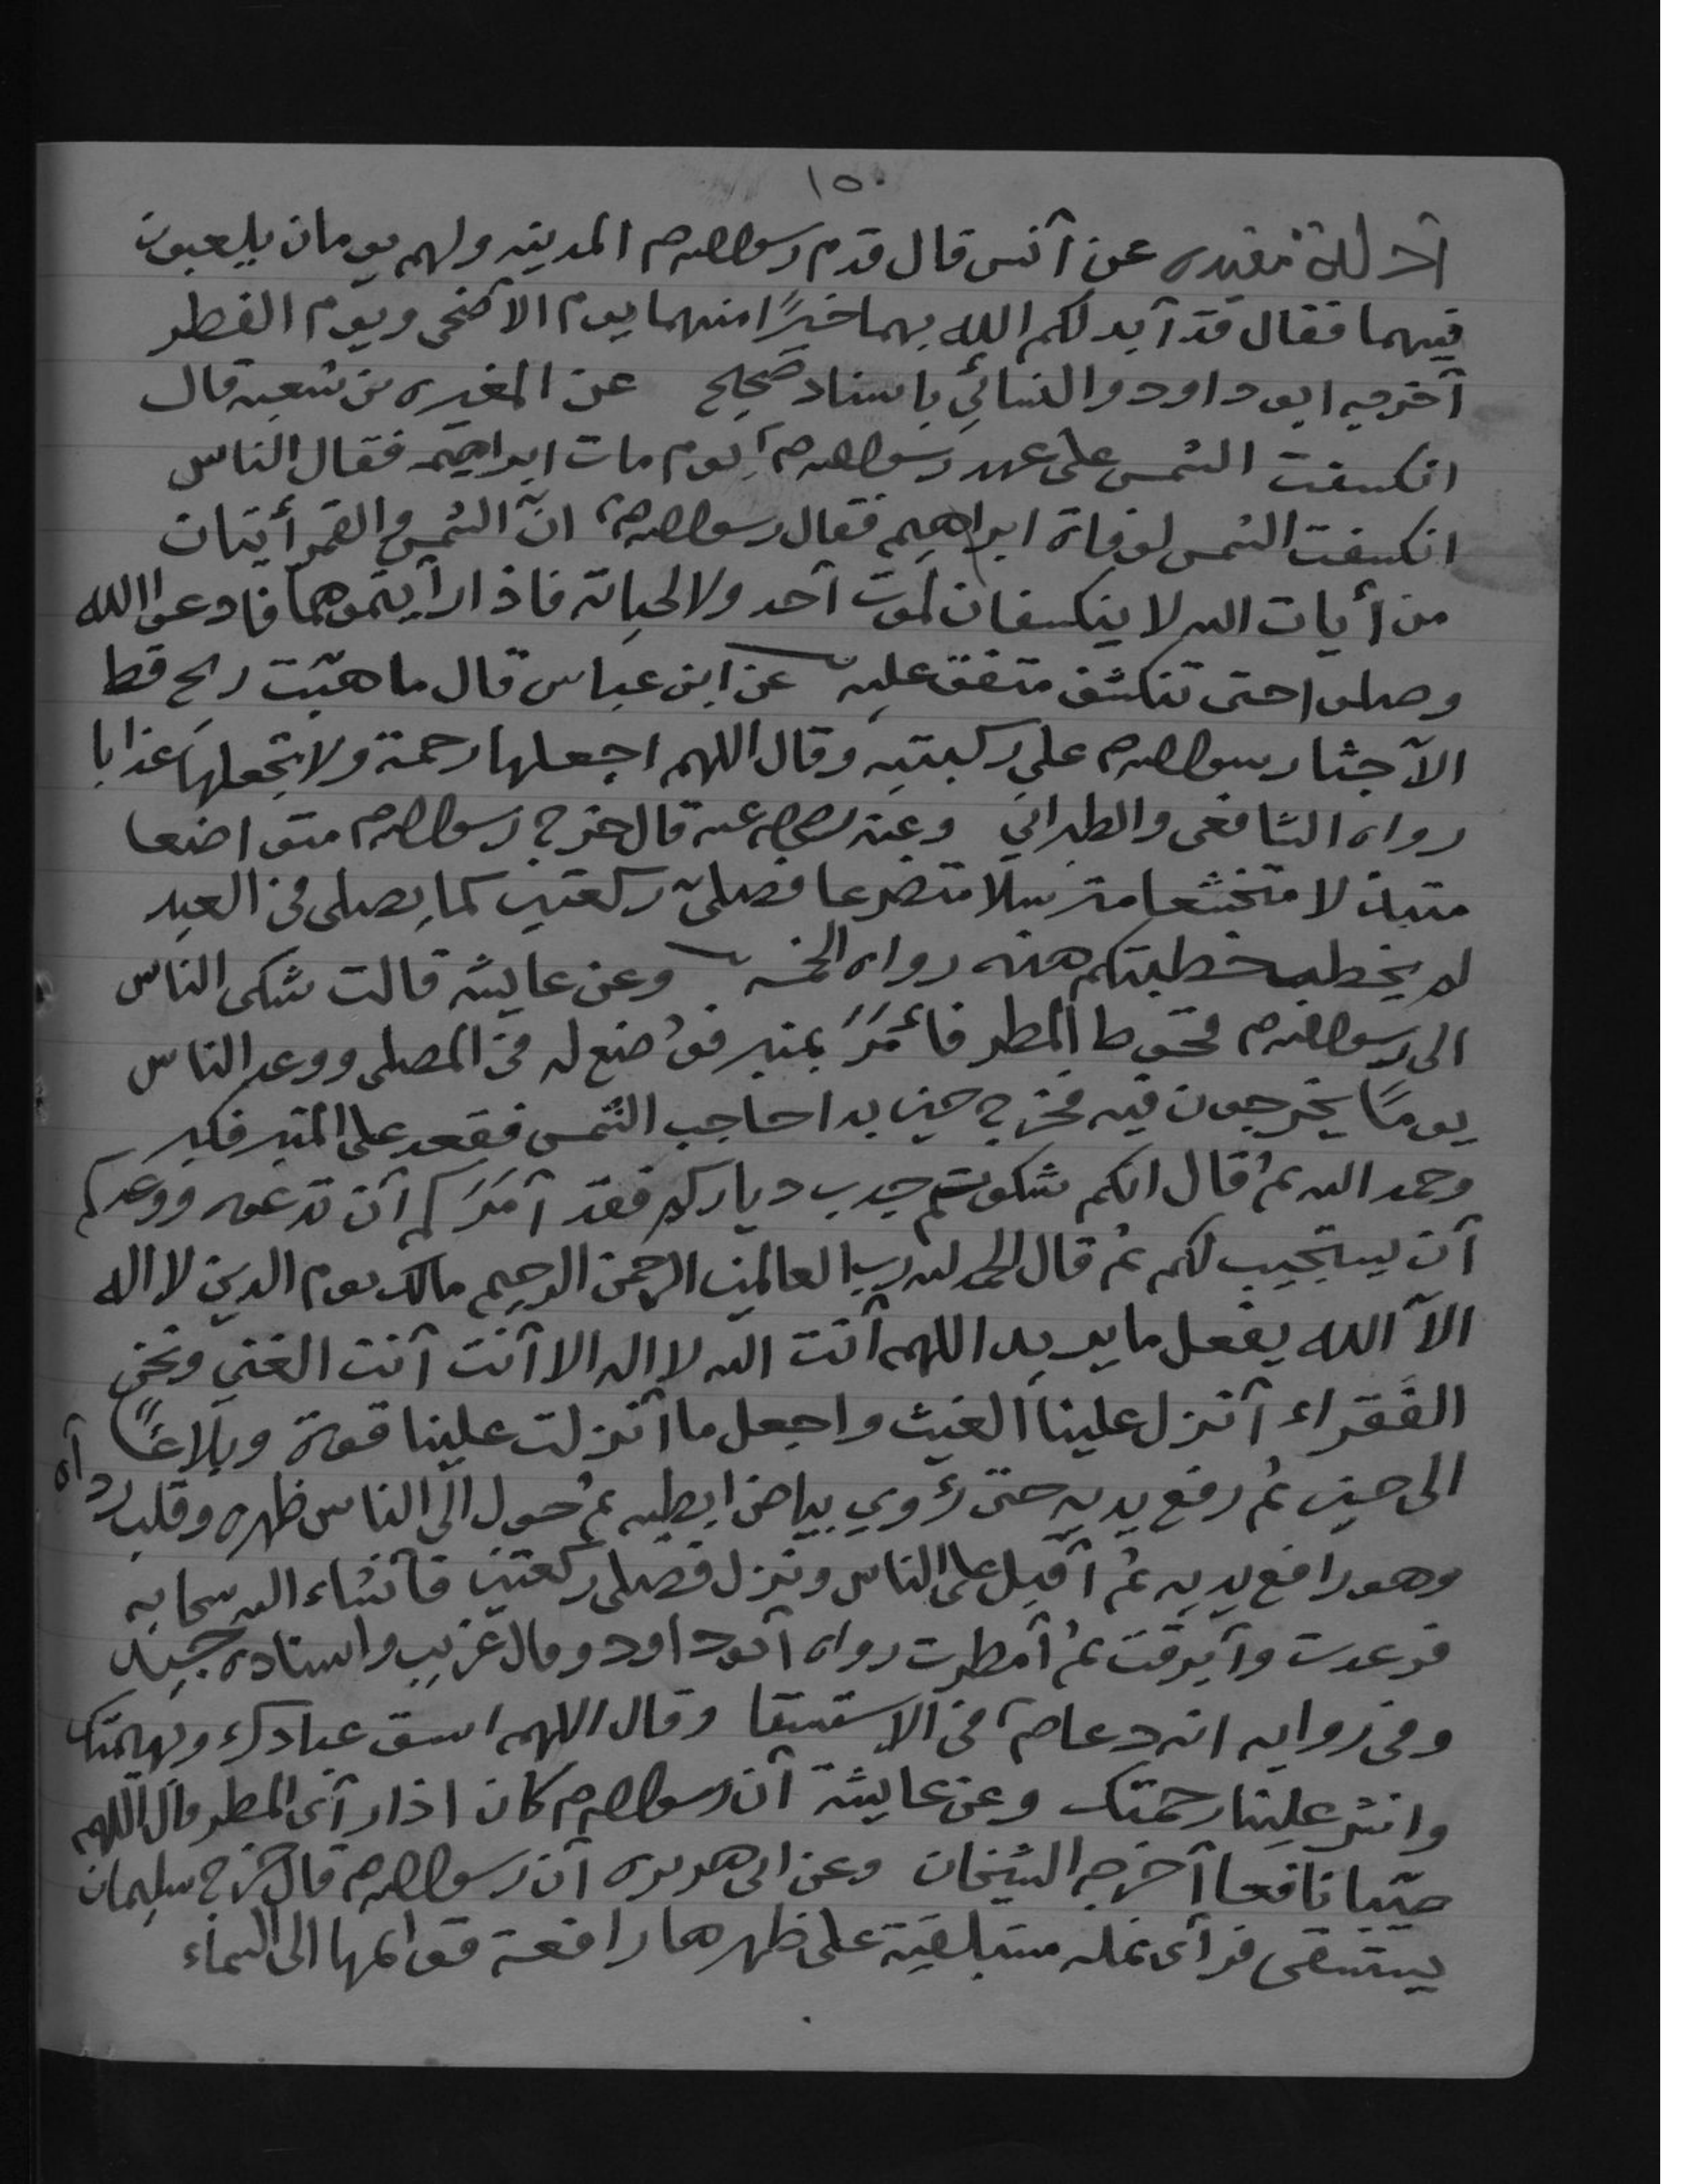 ١٥٠
آدلة مفيده عن آنس قال قدم رسول الله ص م المدينه ولهم يومان يلعبون
فيهما فقال قد آبدلكم الله بهما خيرًا منهما يوم الآضحى ويوم الفطر
آخرجه ابو داود والنسائي باسناد صحيح عن المغيره بن شعبه قال
انكسفت الشمس على عهد رسول الله ص م يوم مات ابراهيم فقال الناس
انكسفت الشمس لوفاة ابراهيم فقال رسول الله ص م انّ الشمس والقمر أيتان
من أيات الله لا ينكسفان لموت آحد ولا لحياته فاذا رآيتموهما فادعوا الله
وصلوا حتى تنكشف متفق عليه عن ابن عباس قال ما هبّت ريح قط
الآ جثا رسول الله ص م على ركبتيه وقال اللهم اجعلها رحمة ولا تجعلها عذابا
رواه الشافعى والطبراني وعنه رضي الله عنه قال خرج رسول الله ص م متواضعا
متبذلا متخشعا مترسلا متضرعا فصلىّ ركعتين كما يصلى فى العيد
لم يخطب خطبتكم هذه رواه الخمسه وعن عايشه قالت شكى الناس
الى رسول الله ص م قحوط المطر فآمَرَ بمنبر فوُضع له فى المصلى ووعد الناس
يومًا يخرجون فيه فخرج حين بدا حاجب الشمس فقعد على المنبر فكبر
وحمد الله ثم قال انكم شكوتم جدب دياركم فقد آمَرَكم آن تدعوه ووعدكم
آن يستجيب لكم ثم قال الحمد لله رب العالمين الرحمن الرحيم مالك يوم الدين لا اله
الآ الله يفعل ما يريد اللهم آنت الله لا اله الا آنت آنت الغني ونحن
الفقراء آنزل علينا الغيث واجعل ما آنزلت علينا قوة وبلاغًا
الى حين ثم رفع يديه حتى رؤي بياض ابطيه ثم حول الى الناس ظهره وقلب ردآه
وهو رافع يديه ثم آقبل على الناس ونزل فصلى ركعتين فآنشاء الله سحابه
فرعدت وآبرقت ثم آمطرت رواه آبو داود وقال غريب واسناده جيد
وفى روايه انه دعا ص م فى الاستسقا وقال اللهم اسق عبادك وبهيمتك
وانشر علينا رحمتك وعن عايشة آن رسول الله ص م كان اذا رآى المطر قال اللهم
صيّبا نافعا آخرجه الشيخان وعن ابى هريره آن رسول الله ص م قال خرج سليمان
يستسقى فرآى نمله مستلقية على ظهرها رافعة قوائمها الى السماء